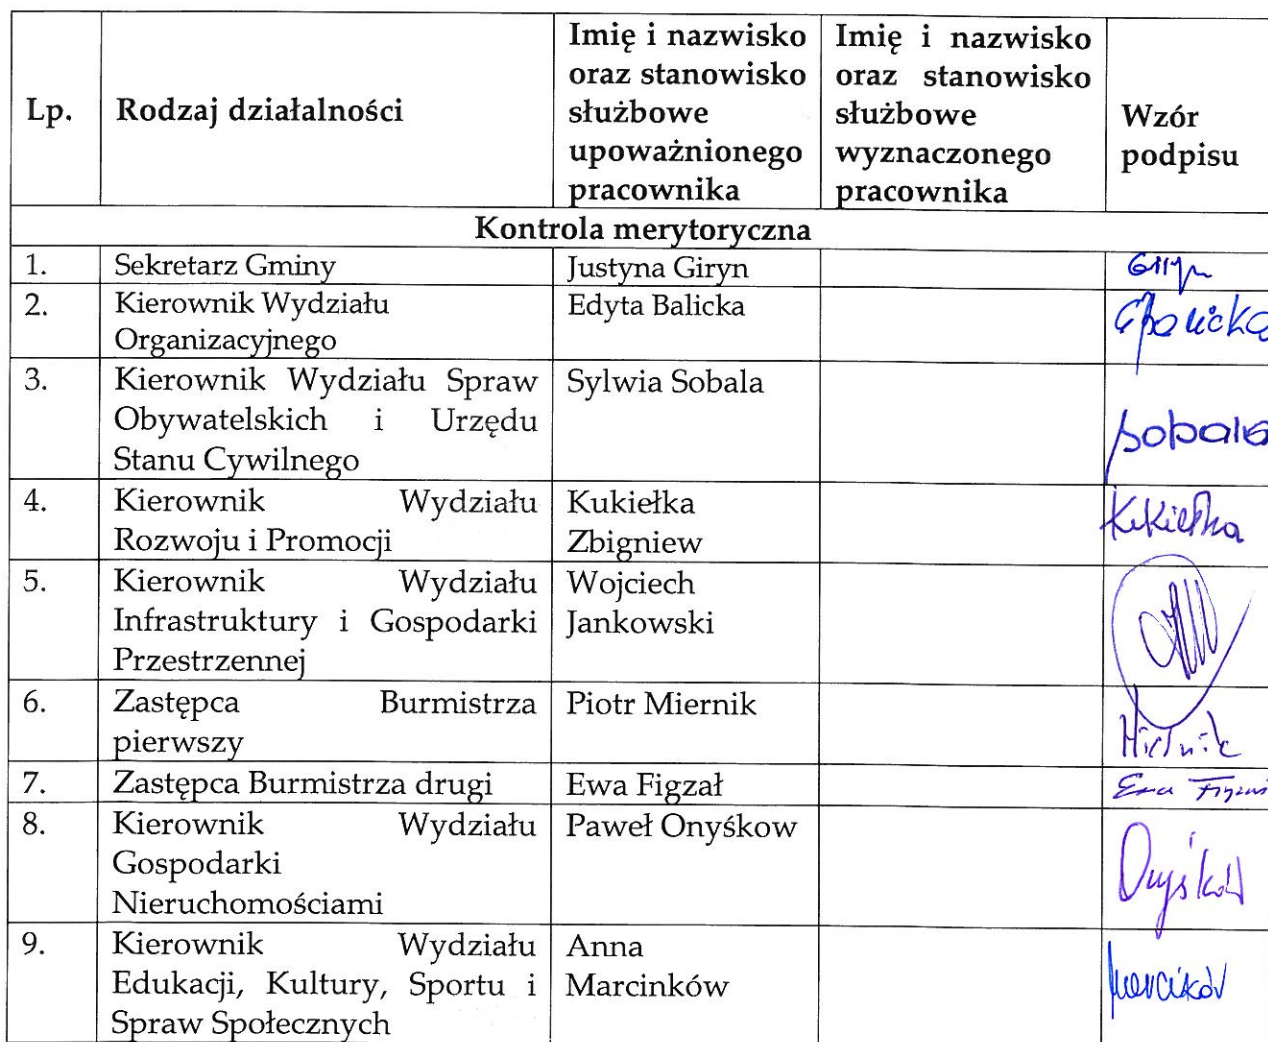 Lp.
Rodzaj działalności
Imię i nazwisko
oraz stanowisko
służbowe
upoważnionego
pracownika
Imię i nazwisko
oraz stanowisko
służbowe
wyznaczonego
pracownika
Wzór
podpisu
Kontrola merytoryczna
1.
Sekretarz Gminy
Justyna Giryn
Giryn
2.
Kierownik Wydziału
Organizacyjnego
Edyta Balicka
EBalicka
3.
Kierownik Wydziału Spraw
Obywatelskich i Urzędu
Stanu Cywilnego
Sylwia Sobala
Sobala
4.
Kierownik Wydziału
Rozwoju i Promocji
Kukiełka
Zbigniew
Kukiełka
5.
Kierownik Wydziału
Infrastruktury i Gospodarki
Przestrzennej
Wojciech
Jankowski
6.
Zastępca Burmistrza
pierwszy
Piotr Miernik
Miernik
7.
Zastępca Burmistrza drugi
Ewa Figzał
Ewa Figzał
8.
Kierownik Wydziału
Gospodarki
Nieruchomościami
Paweł Onyśkow
Onyśków
9.
Kierownik Wydziału
Edukacji, Kultury, Sportu i
Spraw Społecznych
Anna
Marcinków